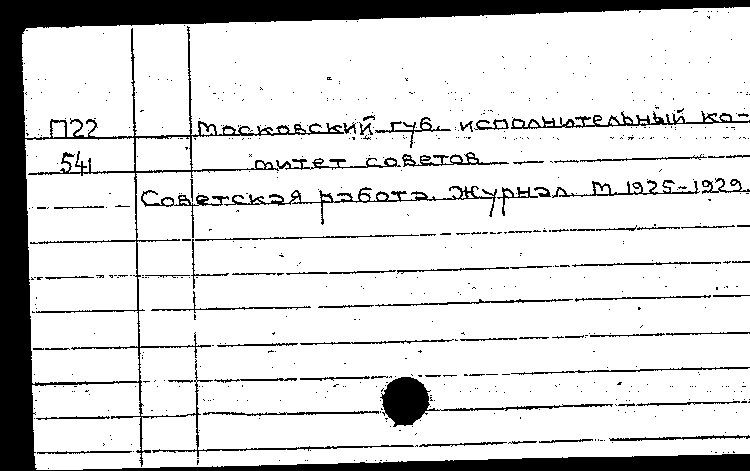 П22 Московский губ. исполнительный ко-
541 митет советов
Советская работа. Журнал. М. 1925-1929.